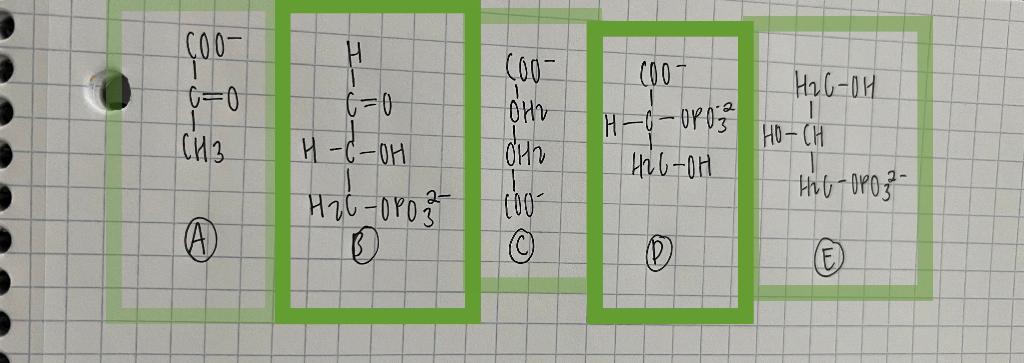 COO⁻
C=O
CH3
A
H
C=O
H-C-OH
H₂C-OPO₃²⁻
B
COO⁻
OH₂
OH₂
COO⁻
C
COO⁻
H-C-OPO₃⁻²
H₂C-OH
D
H₂C-OH
HO-CH
H₂C-OPO₃²⁻
E